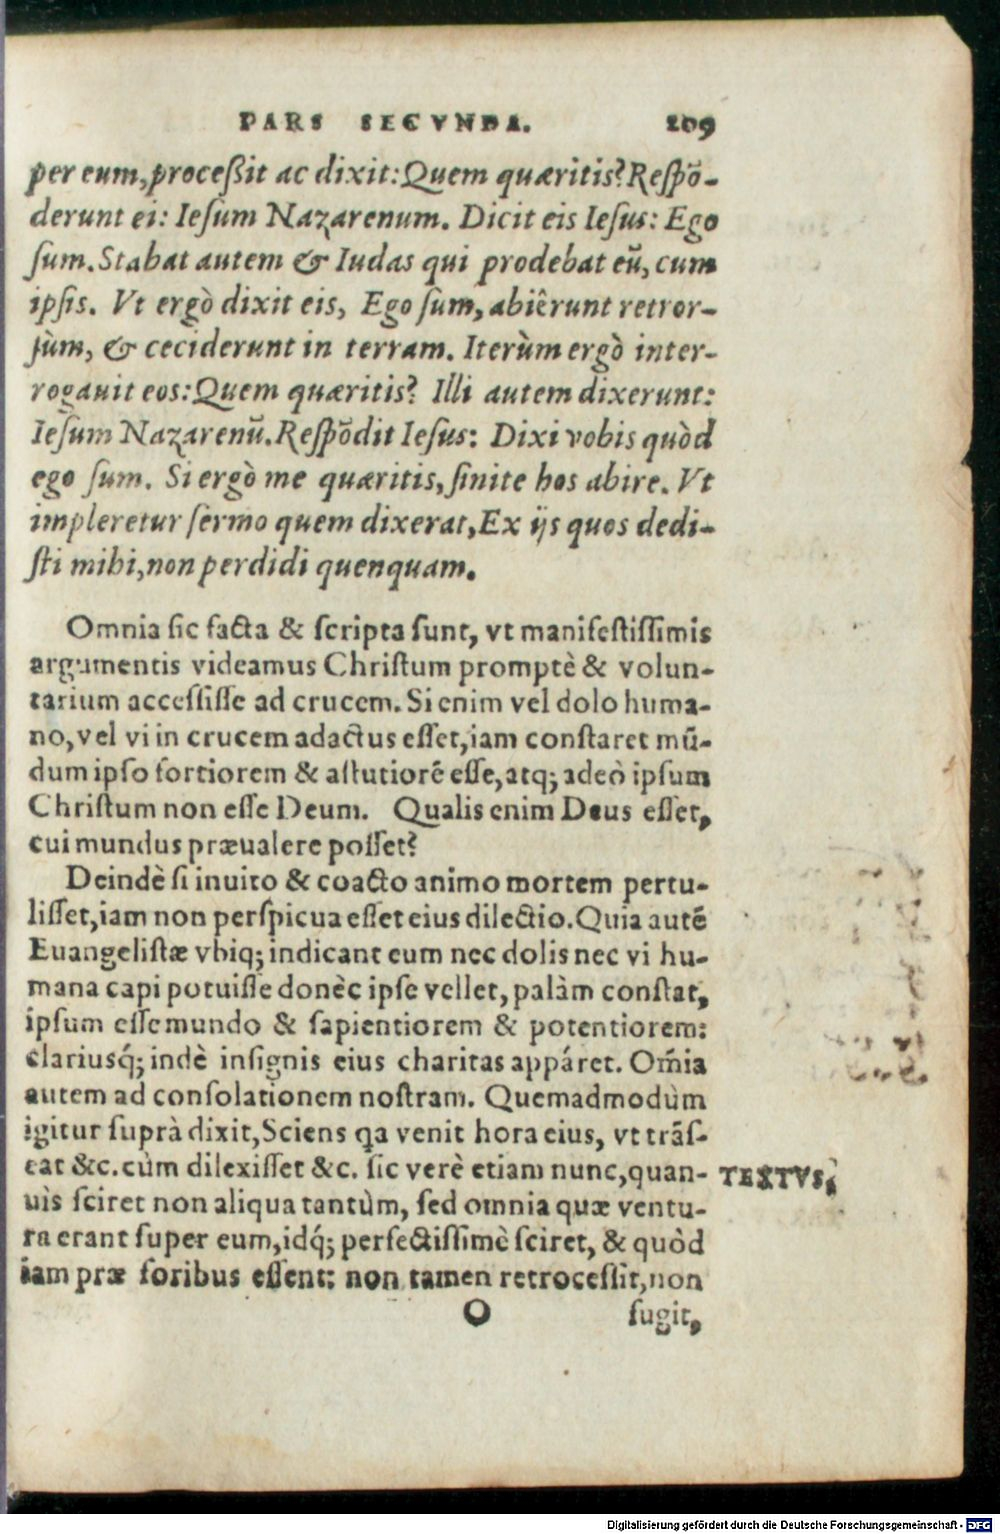 PARS SECVNDA. 209
per eum, proceßit ac dixit: Quem quæritis? Respõ-
derunt ei: Iesum Nazarenum. Dicit eis Iesus: Ego
sum. Stabat autem & Iudas qui prodebat eũ, cum
ipsis. Vt ergò dixit eis, Ego sum, abiêrunt retror-
sùm, & ceciderunt in terram. Iterùm ergò inter-
rogauit eos: Quem quæritis? Illi autem dixerunt:
Iesum Nazarenũ. Respõdit Iesus: Dixi vobis quòd
ego sum. Si ergò me quæritis, sinite hos abire. Vt
impleretur sermo quem dixerat, Ex ijs quos dedi-
sti mihi, non perdidi quenquam.
Omnia sic facta & scripta sunt, vt manifestissimis
argumentis videamus Christum promptè & volun-
tarium accessisse ad crucem. Si enim vel dolo huma-
no, vel vi in crucem adactus esset, iam constaret mũ-
dum ipso fortiorem & astutiorẽ esse, atq; adeò ipsum
Christum non esse Deum. Qualis enim Deus esset,
cui mundus præualere posset?
Deindè si inuito & coacto animo mortem pertu-
lisset, iam non perspicua esset eius dilectio. Quia autẽ
Euangelistæ vbiq; indicant eum nec dolis nec vi hu-
mana capi potuisse donèc ipse vellet, palàm constat,
ipsum esse mundo & sapientiorem & potentiorem:
clariusq́; indè insignis eius charitas appáret. Om̃ia
autem ad consolationem nostram. Quemadmodùm
igitur suprà dixit, Sciens qa venit hora eius, vt trãs-
eat &c. cùm dilexisset &c. sic verè etiam nunc, quan-
uìs sciret non aliqua tantùm, sed omnia quæ ventu-
ra erant super eum, idq́; perfectissimè sciret, & quòd
iam præ foribus essent: non tamen retrocessit, non
TEXTVS.
O fugit,
Digitalisierung gefördert durch die Deutsche Forschungsgemeinschaft - DFG